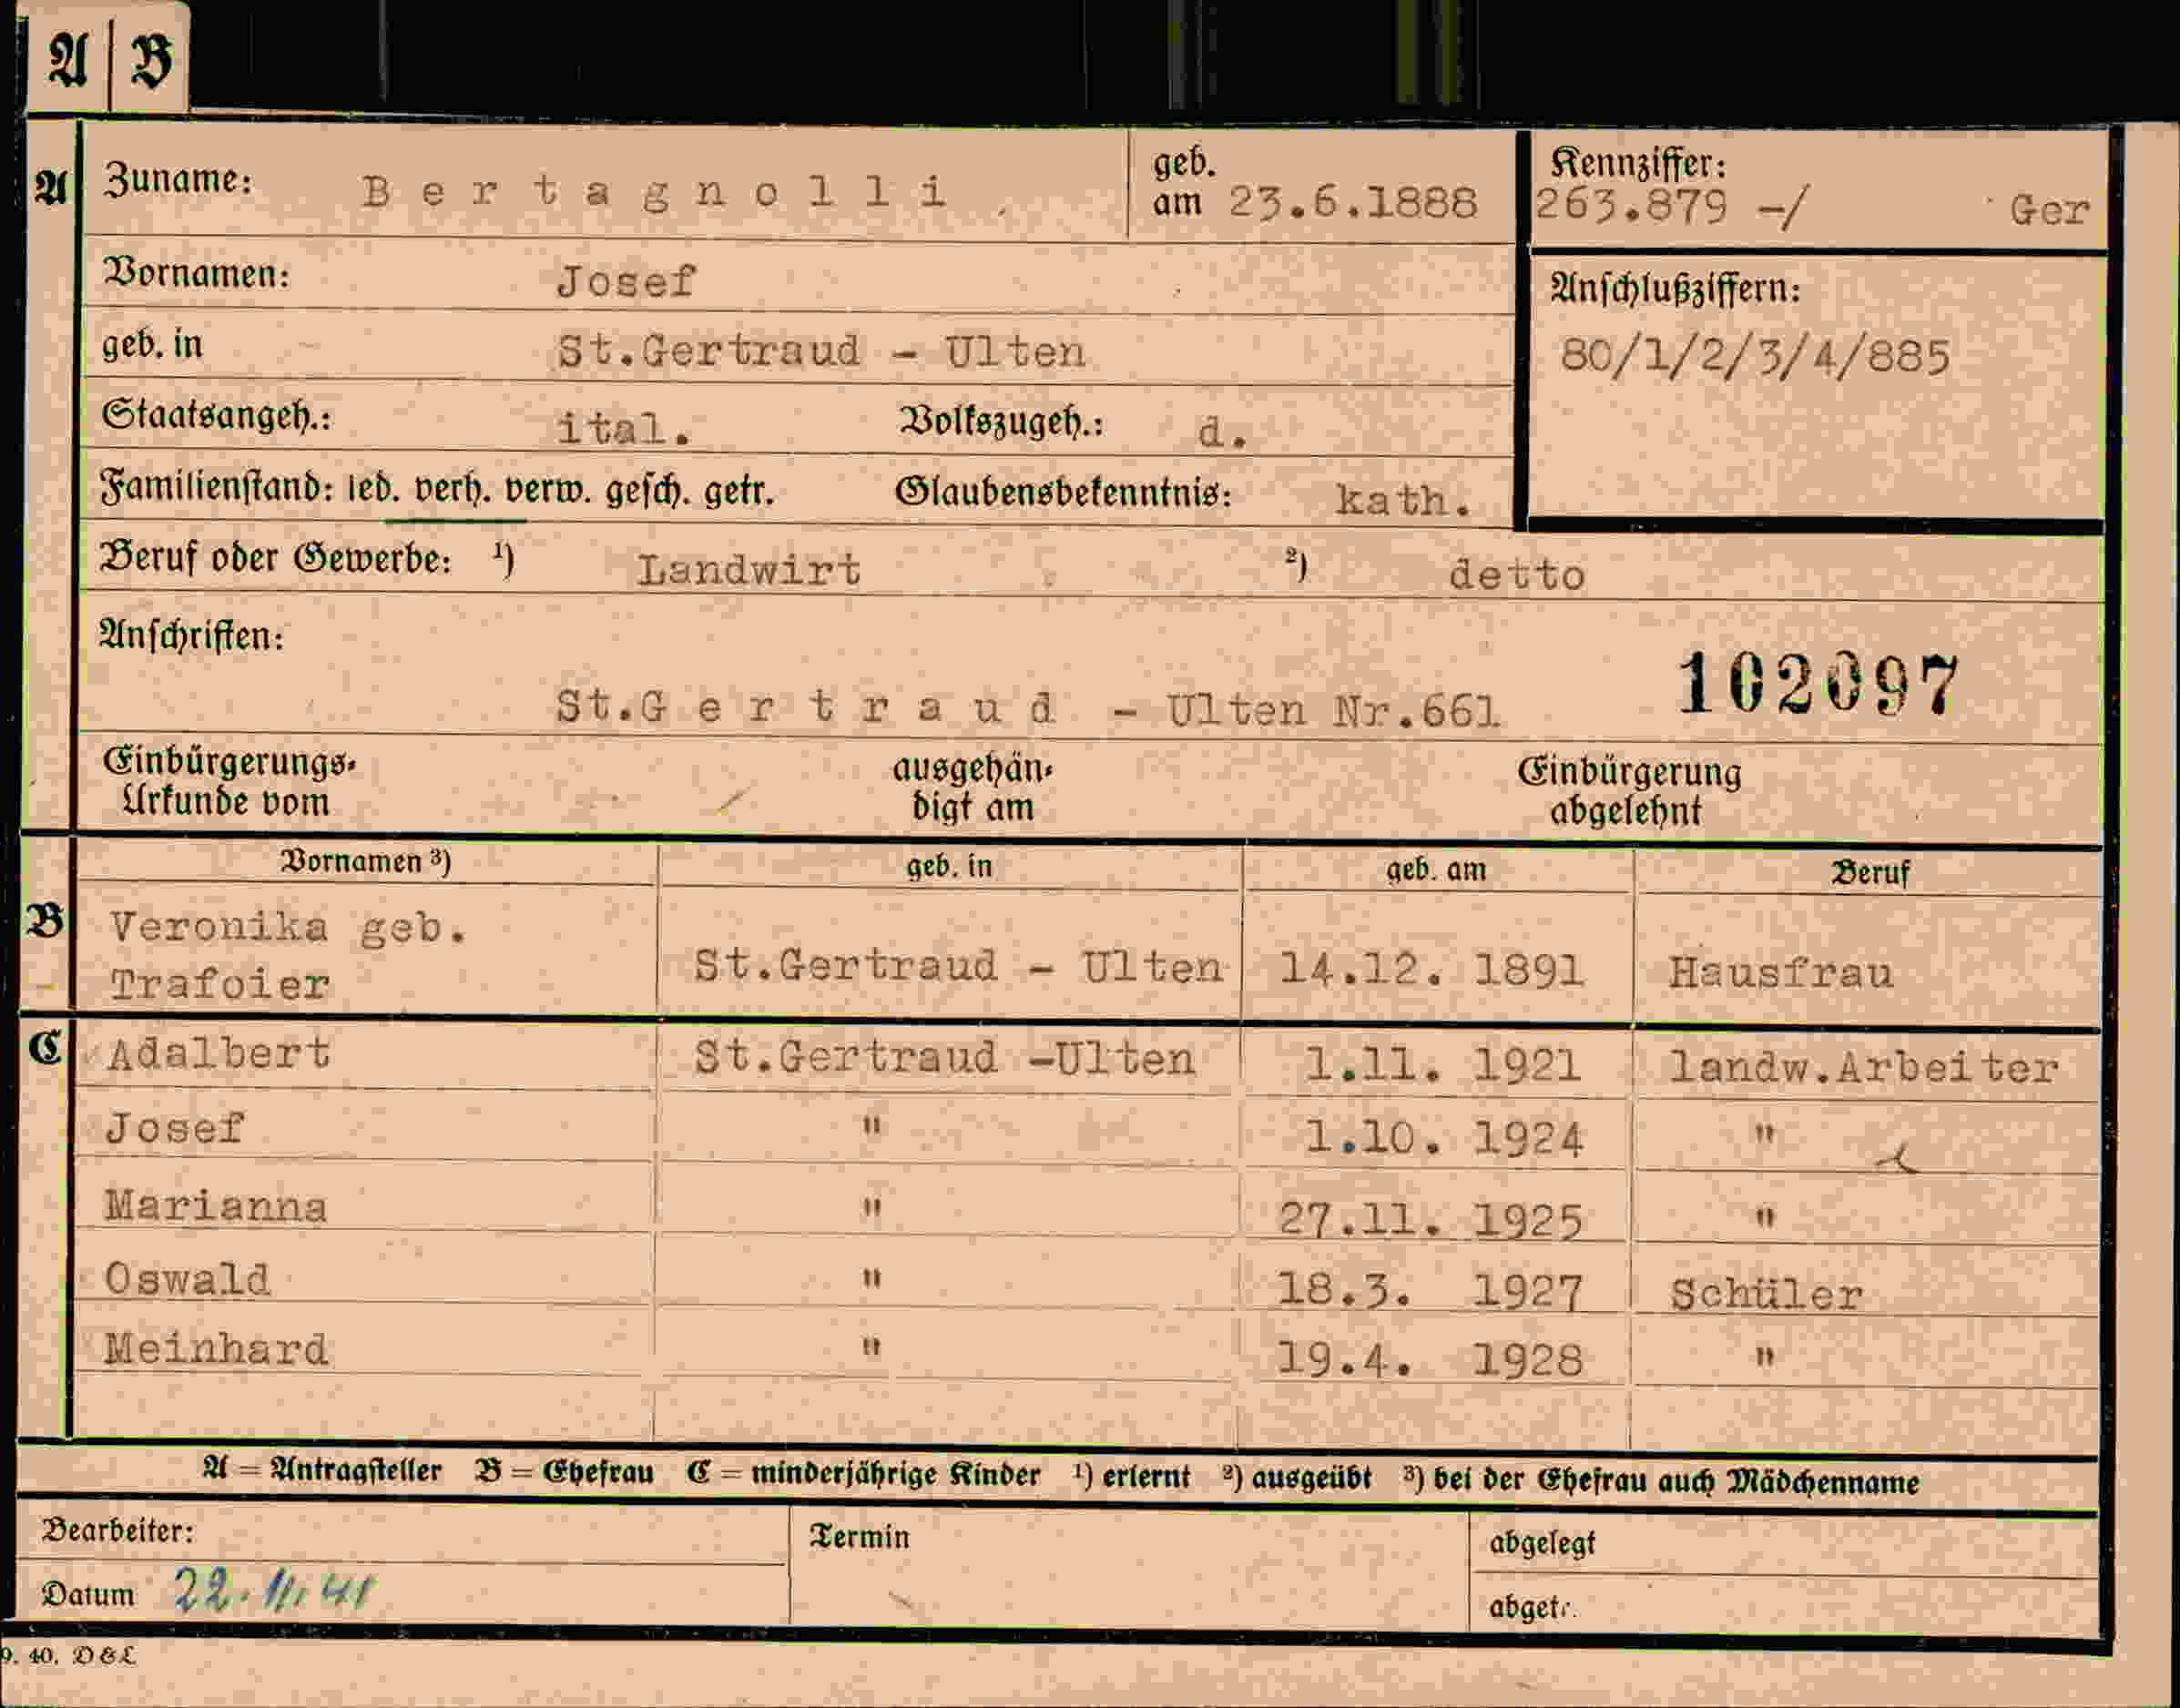 A | B
A Zuname: Bertagnolli geb. am 23.6.1888 Kennziffer: 263.879 -/ Ger
Vornamen: Josef
Anschlußziffern:
geb. in St.Gertraud - Ulten 80/1/2/3/4/885
Staatsangeh.: ital. Volkszugeh.: d.
Familienstand: led. verh. verw. gesch. getr. Glaubensbekenntnis: kath.
Beruf oder Gewerbe: ¹) Landwirt ²) detto
Anschriften:
St.Gertraud - Ulten Nr.661 102097
Einbürgerungs- ausgehän- Einbürgerung
Urkunde vom digt am abgelehnt
Vornamen ³) geb. in geb. am Beruf
B Veronika geb.
Trafoier St.Gertraud - Ulten 14.12. 1891 Hausfrau
C Adalbert St.Gertraud -Ulten 1.11. 1921 landw.Arbeiter
Josef " 1.10. 1924 "
Marianna " 27.11. 1925 "
Oswald " 18.3. 1927 Schüler
Meinhard " 19.4. 1928 "
A = Antragsteller B = Ehefrau C = minderjährige Kinder ¹) erlernt ²) ausgeübt ³) bei der Ehefrau auch Mädchenname
Bearbeiter: Termin abgelegt
Datum 22.11.41 abgetr.
9. 40. D & L